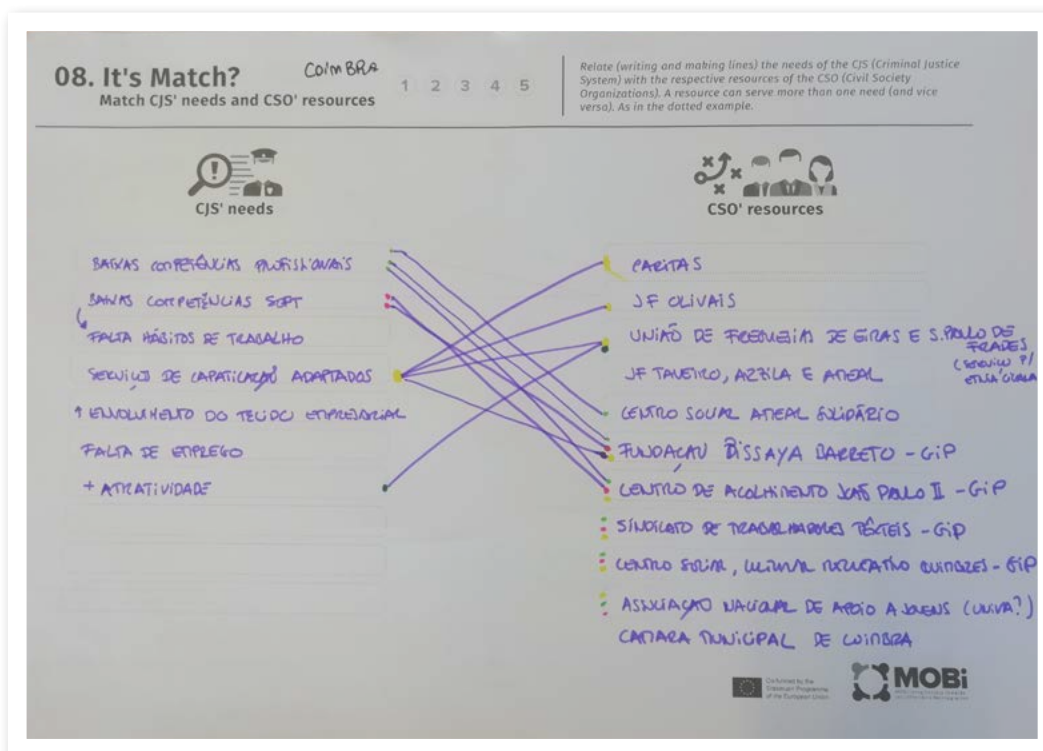 08. It's Match?
COIMBRA
Match CJS' needs and CSO' resources
1 2 3 4 5
Relate (writing and making lines) the needs of the CJS (Criminal Justice
System) with the respective resources of the CSO (Civil Society
Organizations). A resource can serve more than one need (and vice
versa). As in the dotted example.
CJS' needs
BAIXAS COMPETÊNCIAS PROFISSIONAIS
BAIXAS COMPETÊNCIAS SOFT
FALTA HÁBITOS DE TRABALHO
SERVIÇOS DE CAPACITAÇÃO ADAPTADOS
↑ ENVOLVIMENTO DO TECIDO EMPRESARIAL
FALTA DE EMPREGO
+ ATRATIVIDADE
CSO' resources
CARITAS
JF OLIVAIS
UNIÃO DE FREGUESIAS DE EIRAS E S. PAULO DE
FRADES
(SERVIÇO P/
ETNIA CIGANA
JF TAVEIRO, AMEAL E
CENTRO SOCIAL AMEAL SOLIDÁRIO
FUNDAÇÃO BISSAYA BARRETO - GiP
CENTRO DE ACOLHIMENTO JOÃO PAULO II - GiP
SINDICATO DE TRABALHADORES TÊXTEIS - GiP
CENTRO SOCIAL, CULTURAL RECREATIVO QUIMBRES - GiP
ASSOCIAÇÃO NACIONAL DE APOIO A JOVENS (UNIVA?)
CAMARA MUNICIPAL DE COIMBRA
Co-funded by the
Erasmus+ Programme
of the European Union
MOBi